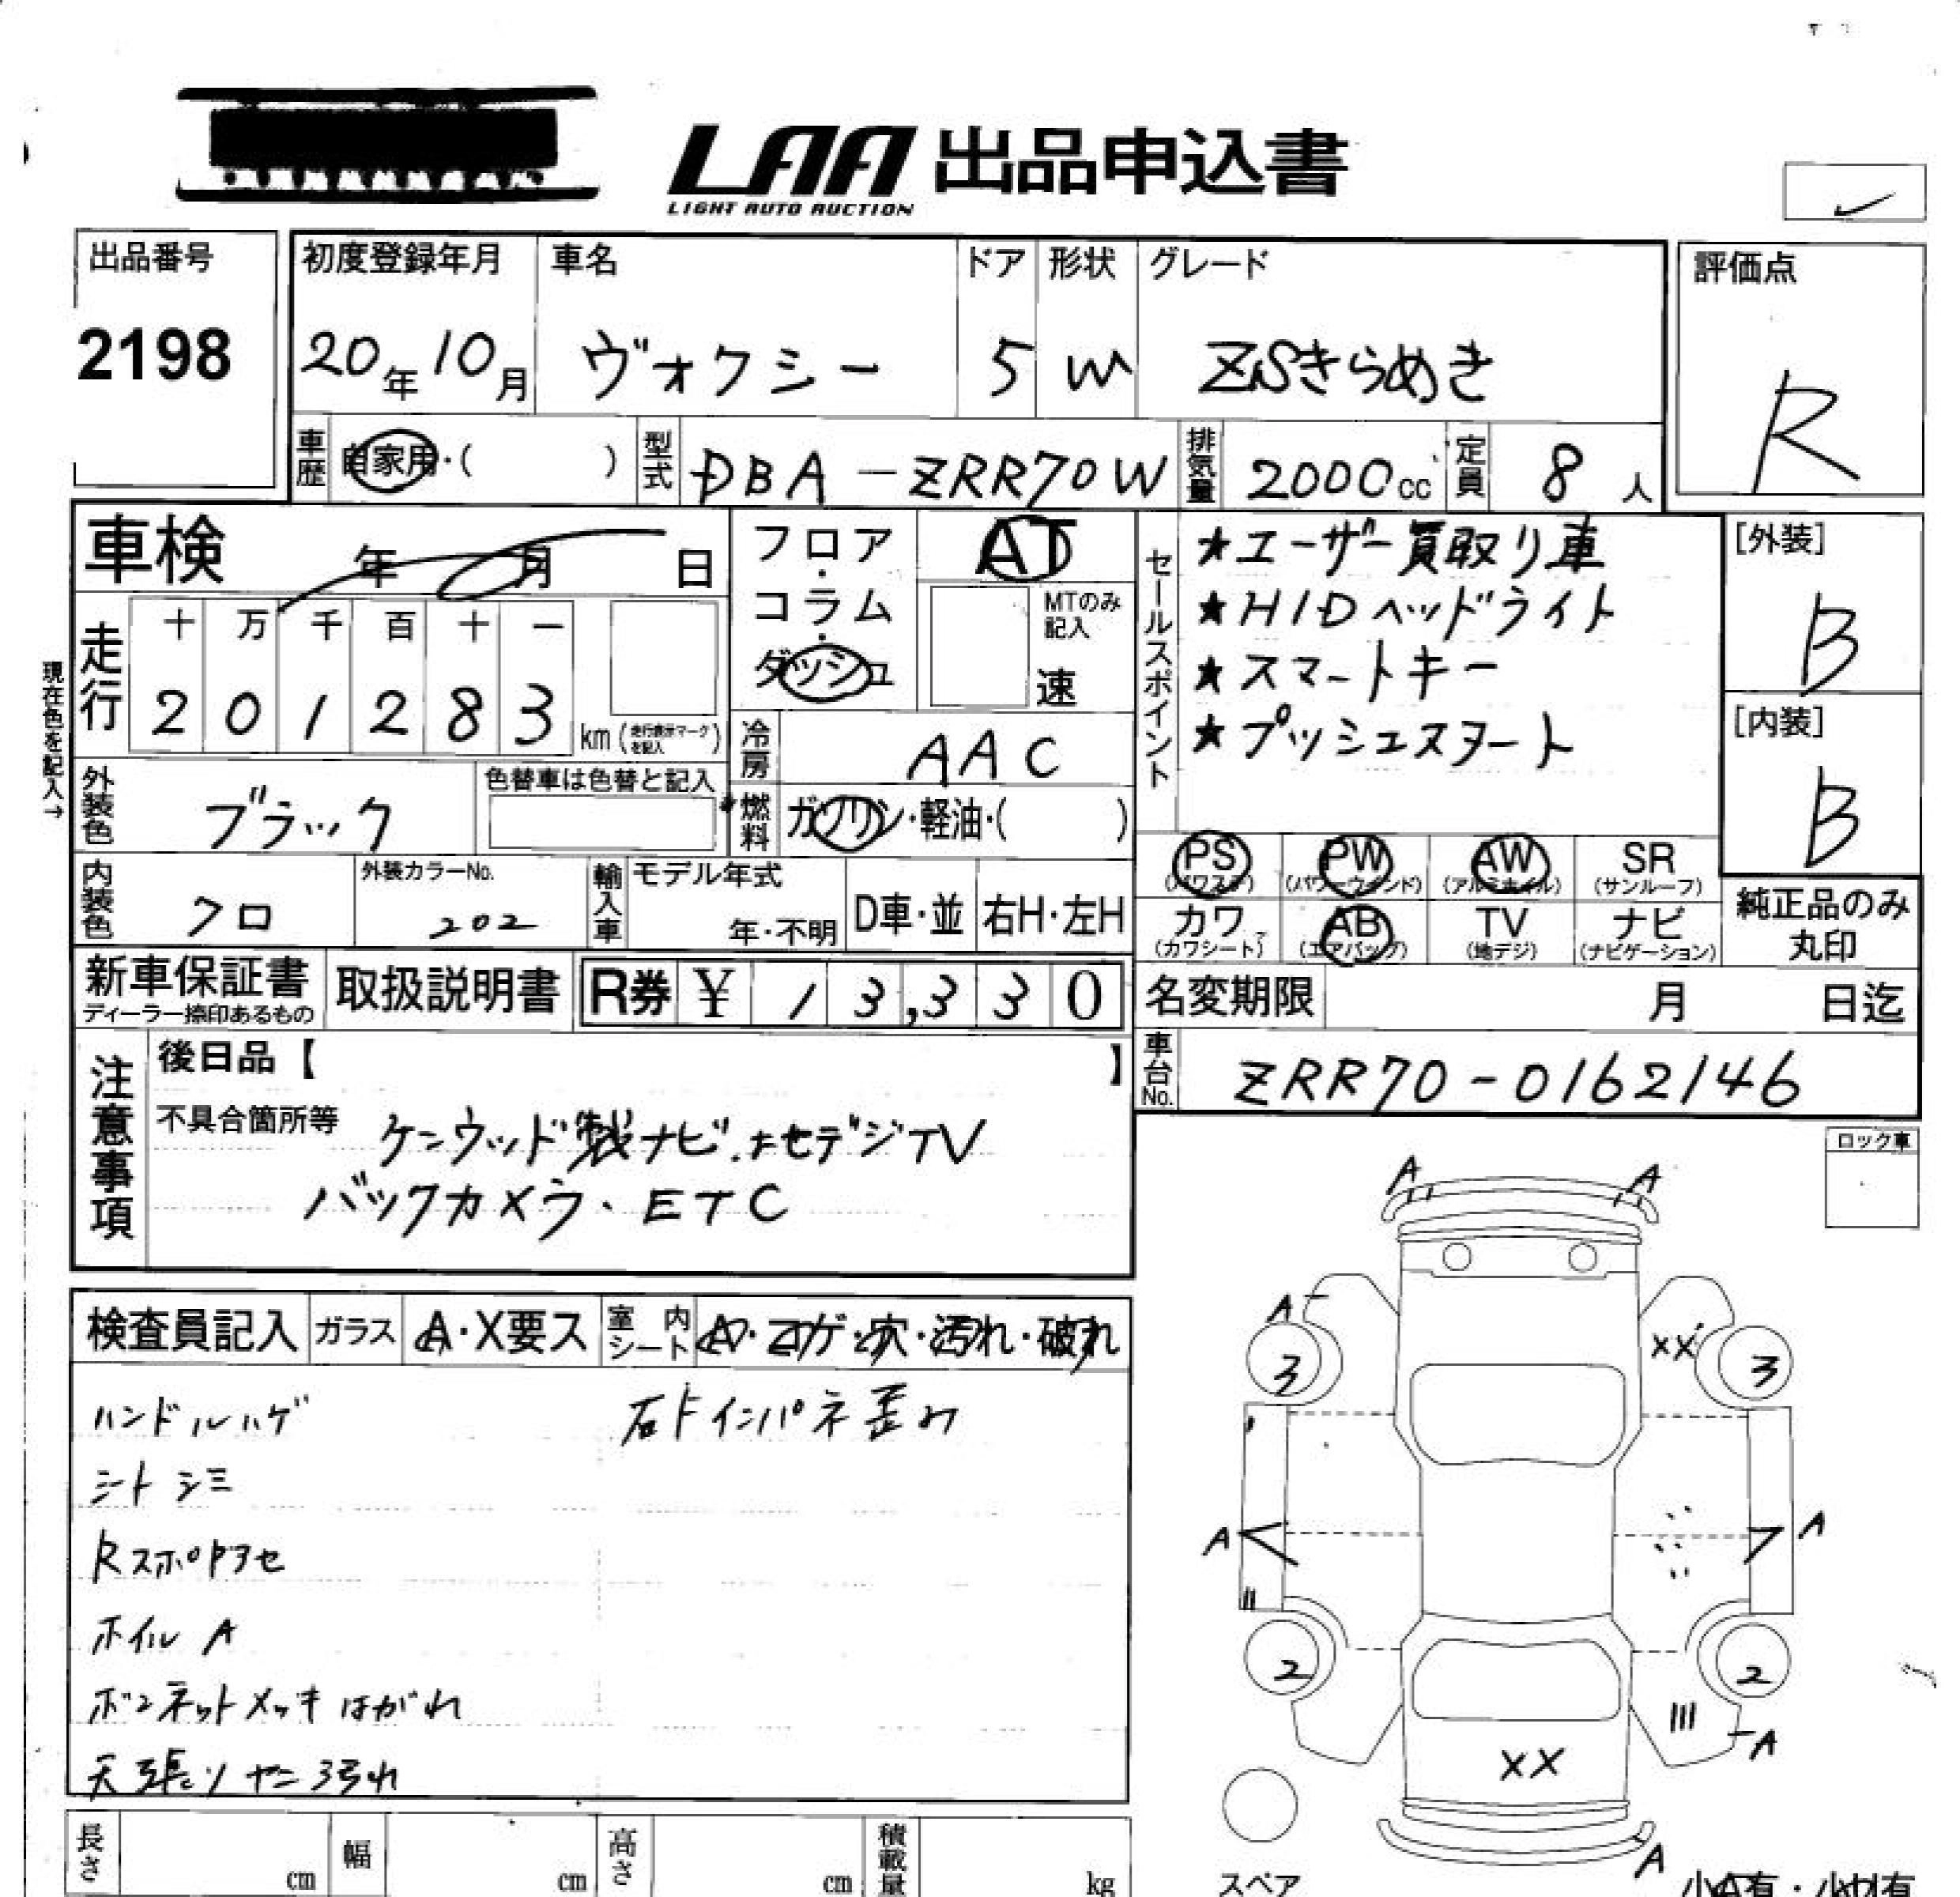 LAA 出品申込書
LIGHT AUTO AUCTION
出品番号
2198
初度登録年月
20年10月
車名
ヴォクシー
ドア
5
形状
W
グレード
ZSきらめき
評価点
R
車歴
自家用・( )
型式
DBA-ZRR70W
排気量
2000cc
定員
8人
車検
年 月 日
フロア・コラム・ダッシュ
AT
MTのみ記入
速
セールスポイント
★ユーザー買取り車
★HIDヘッドライト
★スマートキー
★プッシュスタート
[外装]
B
[内装]
B
現在色を記入→
走行
十 万 千 百 十 一
2 0 1 2 8 3
km(走行表示マークを記入)
冷房
AAC
外装色
ブラック
色替車は色替と記入
燃料
ガソリン・軽油・( )
内装色
クロ
外装カラーNo.
202
輸入車
モデル年式
年・不明
D車・並
右H・左H
PS
(パワステ)
PW
(パワーウインド)
AW
(アルミホイル)
SR
(サンルーフ)
カワ
(カワシート)
AB
(エアバッグ)
TV
(地デジ)
ナビ
(ナビゲーション)
純正品のみ
丸印
新車保証書
ディーラー捺印あるもの
取扱説明書
R券 ¥ 13,330
名変期限
月 日迄
車台No.
ZRR70-0162146
注意事項
後日品【 】
不具合箇所等
ケンウッド製ナビ.地デジTV
バックカメラ・ETC
ロック車
検査員記入
ガラス
A・X要ス
室内シート
A・コゲ・穴・汚れ・破れ
ハンドルハゲ
右Fインパネ歪み
シートシミ
Rスポ色アセ
ホイルA
ボンネットメッキはがれ
天張りヤニ汚れ
A A
A
3
XX
3
A
A
2
2
A
XX
A
スペア
長さ
cm
幅
cm
高さ
cm
積載量
kg